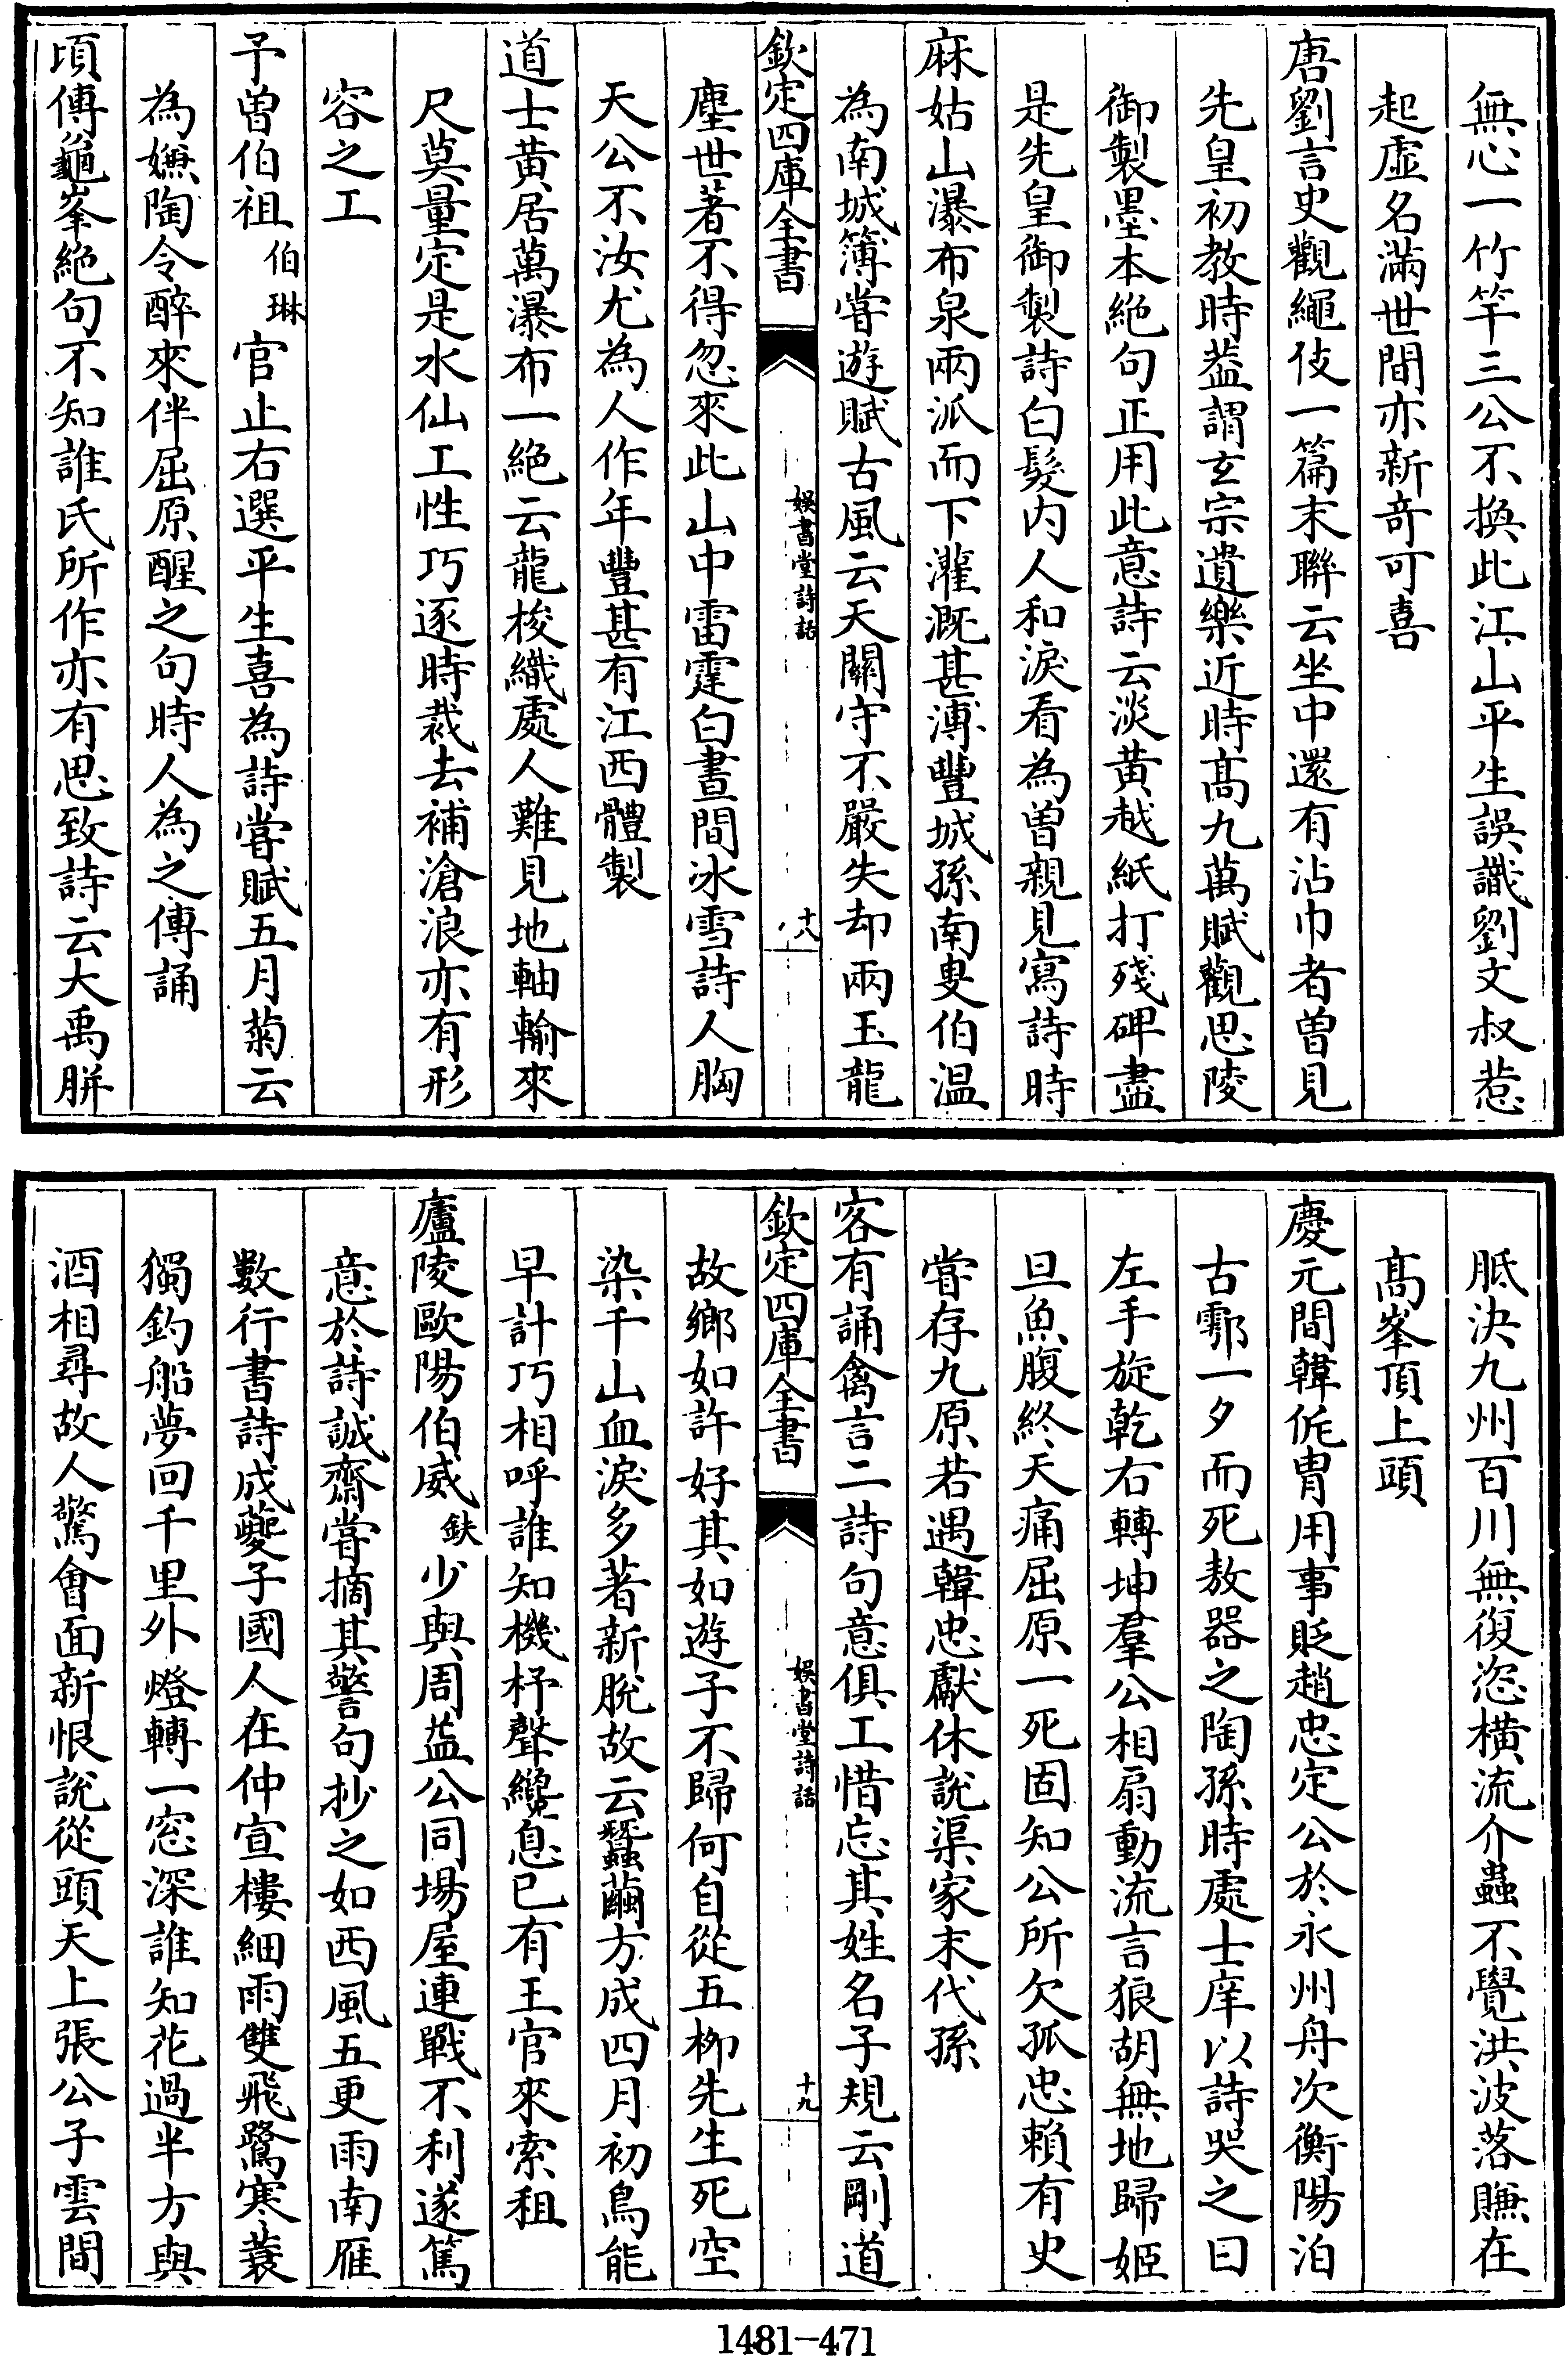 無心一竹竿三公不換此江山平生誤識劉文叔惹
起虚名滿世間亦新竒可喜
唐劉言史觀繩伎一篇末聯云坐中還有沾巾者曽見
先皇初教時葢謂玄宗遺樂近時髙九萬賦觀思陵
御製墨本絶句正用此意詩云淡黄越紙打殘碑盡
是先皇御製詩白髮内人和淚看為曽親見寫詩時
麻姑山瀑布泉兩派而下灌溉甚溥豐城孫南叟伯温
為南城簿嘗遊賦古風云天闗守不嚴失却兩玉龍
欽定四庫全書
娱書堂詩話
十八
塵世著不得忽來此山中雷霆白晝間冰雪詩人胸
天公不汝尤為人作年豐甚有江西體製
道士黄居萬瀑布一絶云龍梭織處人難見地軸輸來
尺莫量定是水仙工性巧逐時裁去補滄浪亦有形
容之工
予曽伯祖伯琳官止右選平生喜為詩嘗賦五月菊云
為嫌陶令醉來伴屈原醒之句時人為之傳誦
頃傳龜峯絶句不知誰氏所作亦有思致詩云大禹胼
胝決九州百川無復恣横流介蟲不覺洪波落賺在
髙峯頂上頭
慶元間韓侂胄用事貶趙忠定公於永州舟次衡陽泊
古酃一夕而死敖器之陶孫時處士庠以詩哭之曰
左手旋乾右轉坤羣公相扇動流言狼胡無地歸姬
旦魚腹終天痛屈原一死固知公所欠孤忠賴有史
嘗存九原若遇韓忠獻休說渠家末代孫
客有誦禽言二詩句意俱工惜忘其姓名子規云剛道
欽定四庫全書
娱書堂詩話
十九
故鄉如許好其如遊子不歸何自從五柳先生死空
染千山血淚多著新脫故云蠶繭方成四月初鳥能
早計巧相呼誰知機杼聲纔息已有王官來索租
廬陵歐陽伯威鈇少與周益公同場屋連戰不利遂篤
意於詩誠齋嘗摘其警句抄之如西風五更雨南雁
數行書詩成夔子國人在仲宣樓細雨雙飛鷺寒蓑
獨釣船夢回千里外燈轉一窓深誰知花過半方與
酒相尋故人驚會面新恨說從頭天上張公子雲間
1481-471